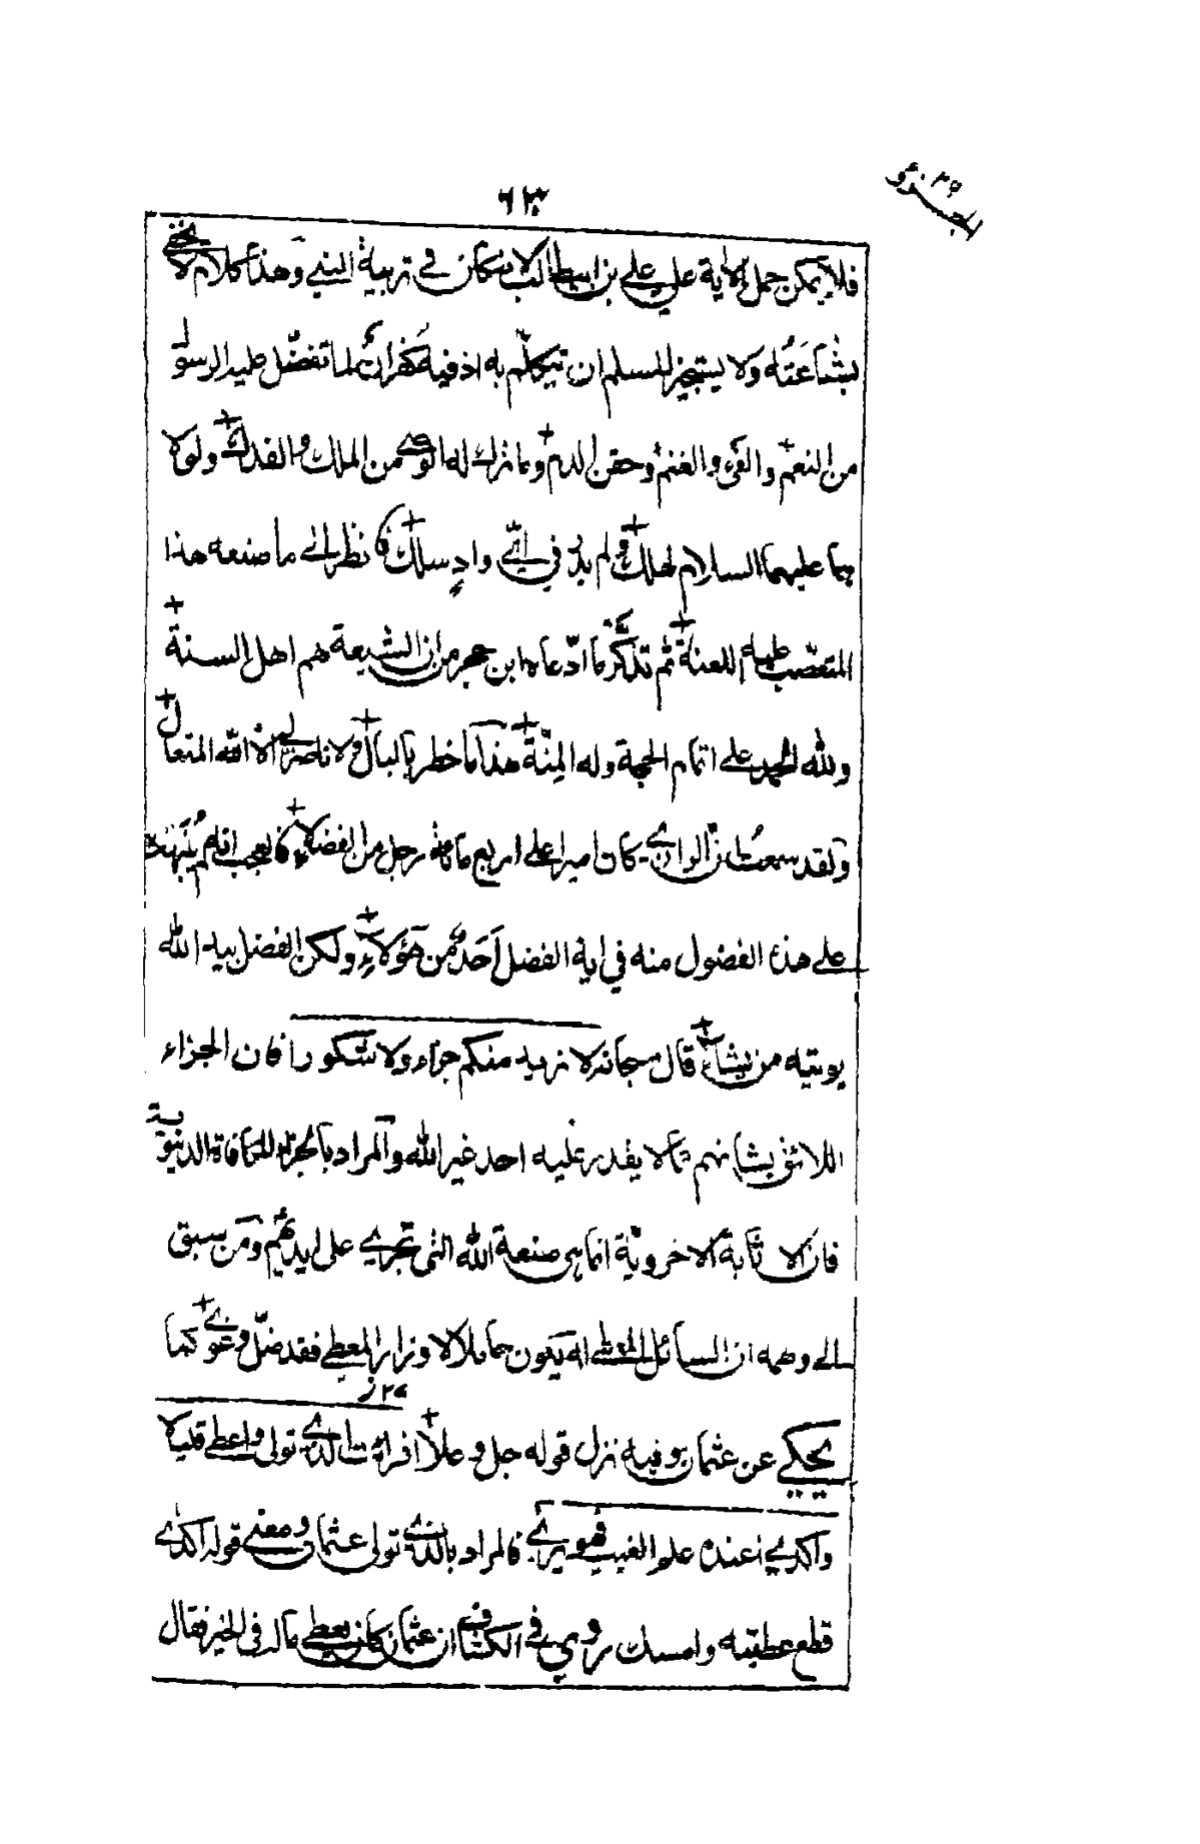 الجزؤ ٢٩
٦٣
فلا يمكن حمل الاية على علي بن ابيطالب لانه كان في تربية النبي وهذا كلام لا يخفى
بشاعته ولا يستجيز المسلم ان يتكلم به اذ فيه كفران لما تفضل عليه الرسول
من النعم والفئ والغنم وحقن الدم وما ترك له الوصي من الملك والفدك ولولا
هما عليهما السلام لهلك ولم يدر في اي واد سلك فانظر الى ما صنعه هذا
المتعصب عليه اللعنة ثم تذكر ما ادعاه ابن حجر من ان الشيعة هم اهل السنة
ولله الحمد على اتمام الحجة وله المنة هذا ما خطر بالبال ولا ناصر لي الا الله المتعال
ولقد سمعت ان الرازي كان اميرا على اربع مائة رجل من الفضلاء فالعجب انه لم ينبهه
على هذا الفضول منه في اية الفضل احد من هؤلاء ولكن الفضل بيد الله
يوتيه من يشاء قال سبحانه لا نريد منكم جزاء ولا شكورا فان الجزاء
اللائق بشانهم مما لا يقدر عليه احد غير الله والمراد بالجزاء المكافاة الدنيوية
فان الاثابة الاخروية انما هي صنعة الله التي تجري على ايديهم ومن سبق
الى وهمه ان السائل المعطى له يكون حاملا لاوزار المعطي فقد ضل وغوى كما
٢٧ ز
يحكى عن عثمان وفيه نزل قوله جل وعلا افرايت الذي تولى واعطى قليلا
واكدى اعنده علم الغيب فهو يرى فالمراد بالذي تولى عثمان ومعنى قوله اكدى
قطع عطيته وامسك روي في الكشاف ان عثمان كان يعطي ماله في الخير فقال